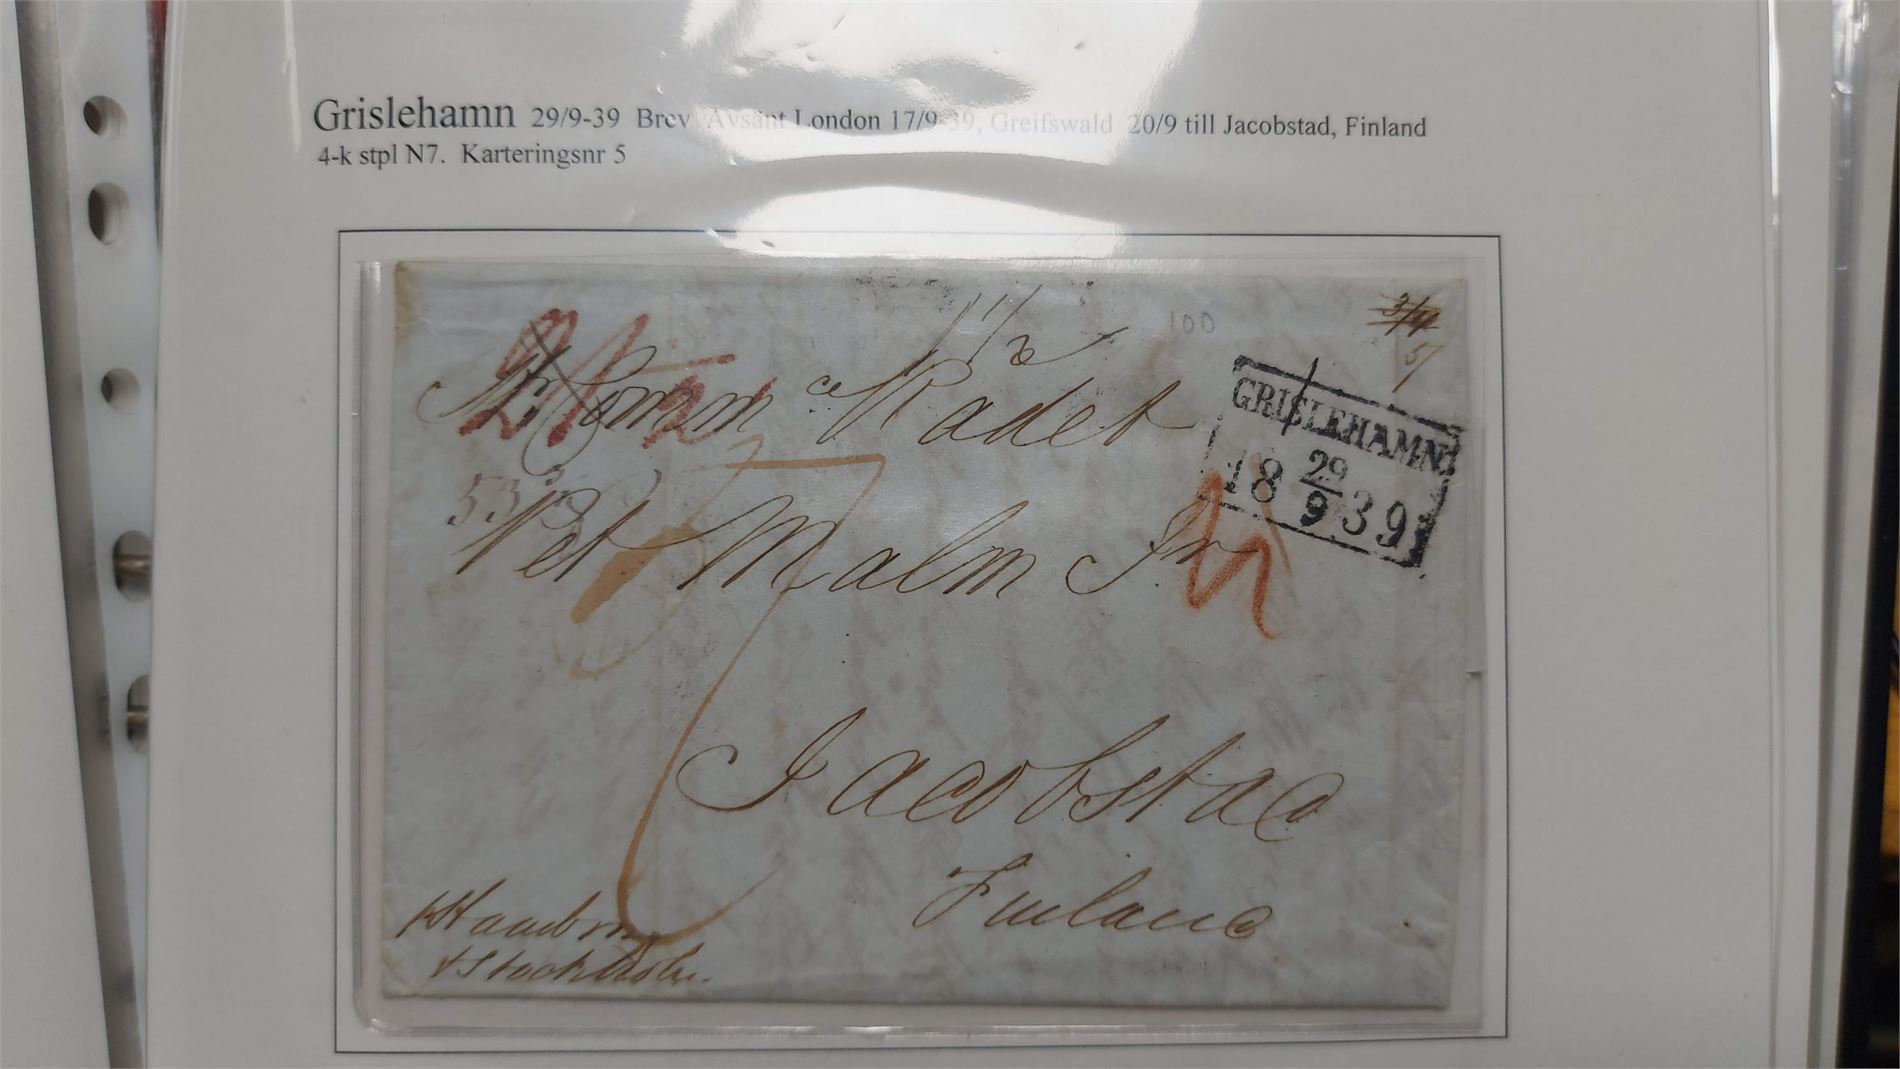 Grislehamn 29/9-39 Brev Avsänt London 17/9-39, Greifswald 20/9 till Jacobstad, Finland
4-k stpl N7. Karteringsnr 5
100
3/4
5/
Comm Rådet
GRISLEHAMN
18 29/9 39
53
Pet Malm Jr
Jacobstad
Finland
Stockholm.